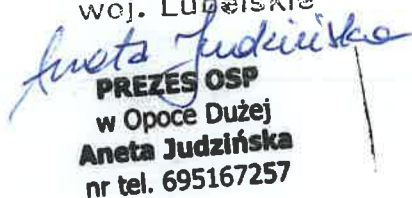 woj. Lubelskie
Aneta Judzińska
PREZES OSP
w Opoce Dużej
Aneta Judzińska
nr tel. 695167257